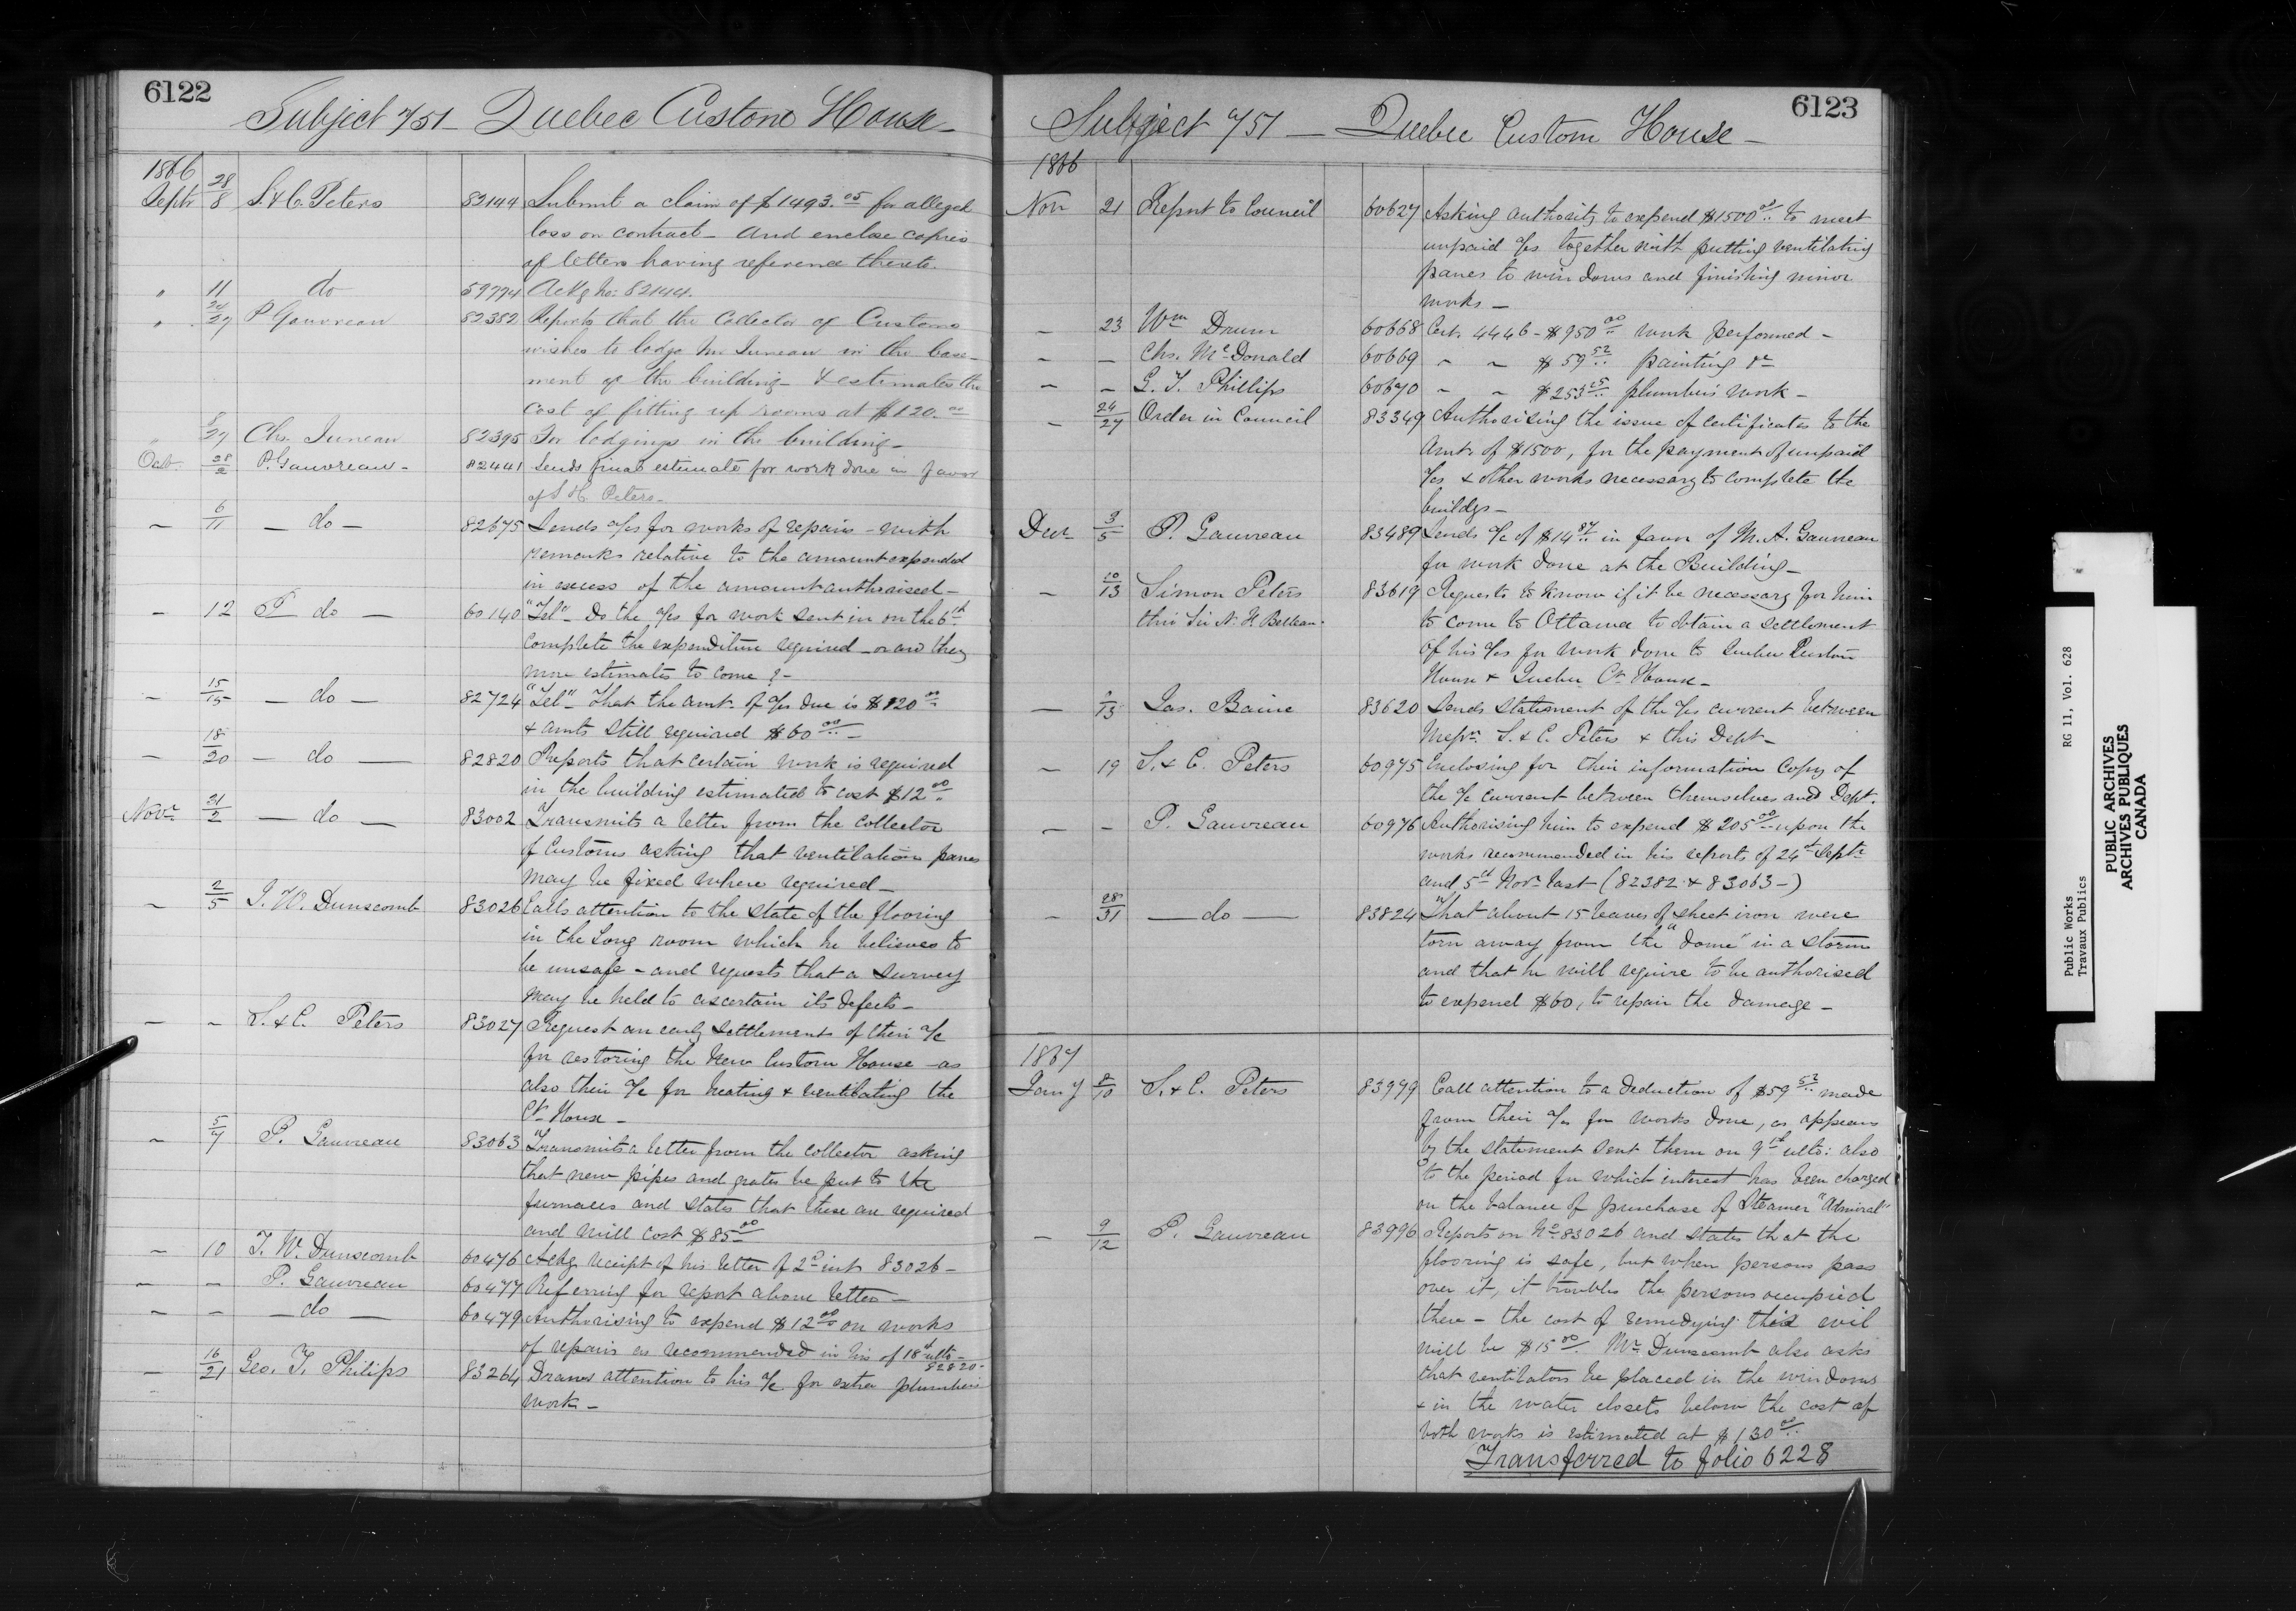 6122
Subject 7/51 - Quebec Custom House -
1866
Septr 28/8 S. & C. Peters 82144 Submit a claim of $1493.05 for alleged
loss on contract - and enclose copies
of letters having reference thereto.
" 11 do 59774 Ackg No: 82144.
" 24/27 P Gauvreau 82382 Reports that the Collector of Customs
wishes to lodge Mr Juneau in the base-
ment of the building - & estimates the
cost of fitting up rooms at $120.00
" 27 Chs. Juneau 82395 For lodgings in the building -
Oct. 28/2 P. Gauvreau - 82441 Sends final estimate for work done in favor
of S H. Peters -
- 6/11 - do - 82675 Sends a/cs for works of repairs - with
remarks relative to the amount expended
in excess of the amount authorised -
- 12 P do - 60140 "Tel" - Do the a/cs for work sent in on the 6th
complete the expenditure required - or are they
more estimates to come? -
- 15/15 - do - 82724 "Tel" - That the amt. of a/cs due is $820.00
& amts still required $60.00 -
- 18/20 - do - 82820 Reports that certain work is required
in the building estimated to cost $12.00
Novr 31/2 - do - 83002 Transmits a letter from the Collector
of Customs asking that ventilation panes
may be fixed where required -
- 2/5 J. W. Dunscomb 83026 Calls attention to the state of the flooring
in the Long room which he believes to
be unsafe - and requests that a survey
may be held to ascertain its defects -
- - S. & C. Peters 83027 Request an early settlement of their a/c
for restoring the New Custom House - as
also their a/c for heating & ventilating the
Ct House -
- 5/7 P. Gauvreau 83063 Transmits a letter from the collector asking
that new pipes and grates be put to the
furnaces and states that these are required
and will cost $85.00
- 10 J. W. Dunscomb 60476 Ackg receipt of his letter of 2d inst 83026 -
- - P. Gauvreau 60477 Referring for report above letter -
- - - do - 60479 Authorising to expend $12.00 on works
of repairs as recommended in his of 18th ulto -
82820 -
- 16/21 Geo. T. Philips 83264 Draws attention to his a/c for extra plumbers
work -
6123
Subject 7/51 - Quebec Custom House -
1866
Nov 21 Report to Council 60627 Asking authority to expend $1500.00 to meet
unpaid a/cs together with putting ventilating
panes to windows and finishing minor
works -
- 23 Wm Drum 60668 Cert. 4446 - $950.00 work performed -
- - Chs. McDonald 60669 " " $59.52 painting &c
- - G. T. Phillips 60670 " " $253.25 plumbers work -
- 24/27 Order in Council 83349 Authorising the issue of certificates to the
amt of $1500, for the payment of unpaid
a/cs & other works necessary to complete the
buildgs -
Decr 3/5 P. Gauvreau 83489 Sends a/c of $14.87 in favor of M. A. Gauvreau
for work done at the Building -
- 10/13 Simon Peters 83619 Requests to know if it be necessary for him
thro Sir N. F. Belleau. to come to Ottawa to obtain a settlement
of his a/cs for work done to Quebec Custom
House & Quebec Ct House -
- /13 Jas. Baine 83620 Sends statement of the a/cs current between
Messrs. S. & C. Peters & this Dept -
- 19 S. & C. Peters 60975 Enclosing for their information Copy of
the a/c current between themselves and Dept.
- - P. Gauvreau 60976 Authorising him to expend $205.00 upon the
works recommended in his reports of 24th Septr
and 5th Novr last (82382 & 83063 -)
- 28/31 - do - 83824 That about 15 leaves of sheet iron were
torn away from the "dome" in a storm
and that he will require to be authorised
to expend $60, to repair the damage -
1867
Jany 8/10 S. & C. Peters 83979 Call attention to a deduction of $59.52 made
from their a/cs for works done, as appears
by the statement sent them on 9th ulto: also
to the period for which interest has been charged
on the balance of purchase of Steamer "Admiral"
- 9/12 P. Gauvreau 83996 Reports on No 83026 and states that the
flooring is safe, but when persons pass
over it, it troubles the persons occupied
there - the cost of remedying this evil
will be $15.00. Mr Dunscomb also asks
that ventilators be placed in the windows
& in the water closets below the cost of
both works is estimated at $130.00
Transferred to folio 6228
Public Works
Travaux Publics
RG 11, Vol. 628
PUBLIC ARCHIVES
ARCHIVES PUBLIQUES
CANADA